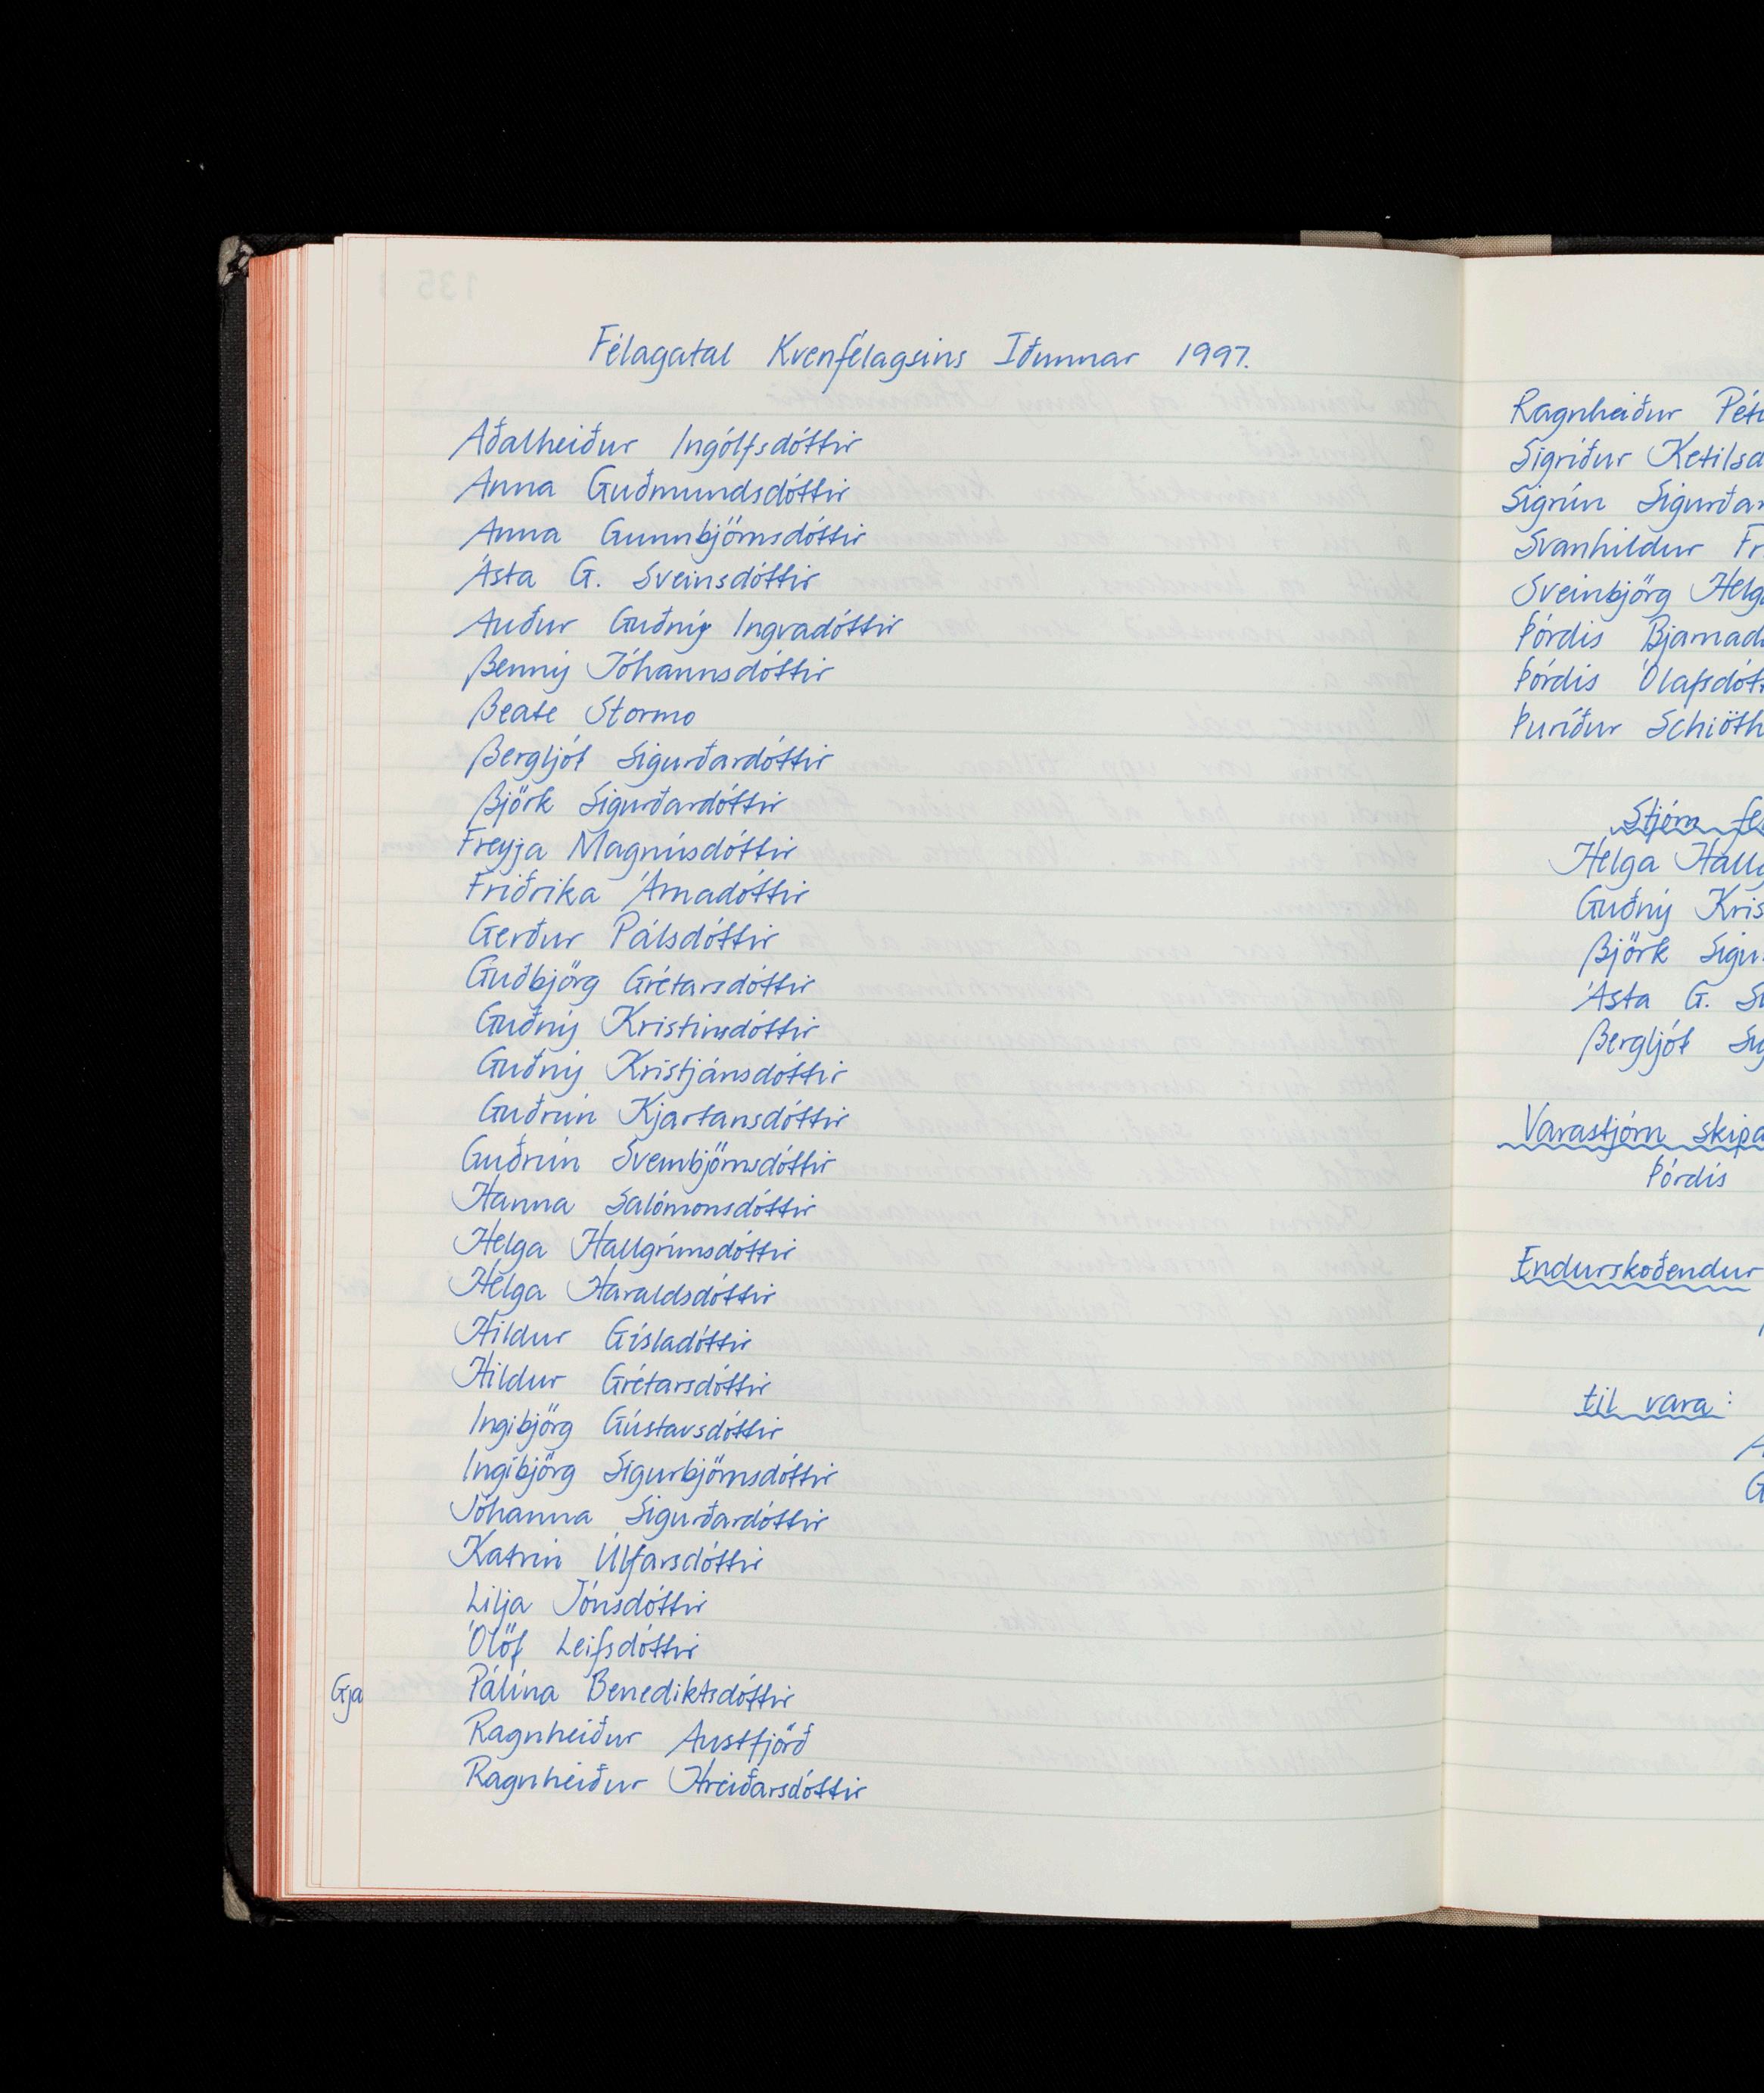 Félagatal Kvenfélagsins Iðunnar 1997.
Aðalheiður Ingólfsdóttir
Anna Guðmundsdóttir
Anna Gunnbjörnsdóttir
Ásta G. Sveinsdóttir
Auður Guðný Ingvadóttir
Benný Jóhannsdóttir
Beate Stormo
Bergljót Sigurðardóttir
Björk Sigurðardóttir
Freyja Magnúsdóttir
Friðrika Árnadóttir
Gerður Pálsdóttir
Guðbjörg Grétarsdóttir
Guðný Kristinsdóttir
Guðný Kristjánsdóttir
Guðrún Kjartansdóttir
Guðrún Sveinbjörnsdóttir
Hanna Salómonsdóttir
Helga Hallgrímsdóttir
Helga Haraldsdóttir
Hildur Gísladóttir
Hildur Grétarsdóttir
Ingibjörg Gústavsdóttir
Ingibjörg Sigurbjörnsdóttir
Jóhanna Sigurðardóttir
Katrín Úlfarsdóttir
Lilja Jónsdóttir
Ólöf Leifsdóttir
Gja Pálína Benediktsdóttir
Ragnheiður Austfjörð
Ragnheiður Hreiðarsdóttir
Ragnheiður Pét
Sigríður Ketilsd
Sigrún Sigurðar
Svanhildur Fr
Sveinbjörg Helg
Þórdís Bjarnad
Þórdís Ólafsdót
Þuríður Schiöth
Stjórn fé
Helga Hallg
Guðný Kris
Björk Sigu
Ásta G. S
Bergljót Sig
Varastjórn skipa
Þórdís
Endurskoðendur
til vara:
A
G